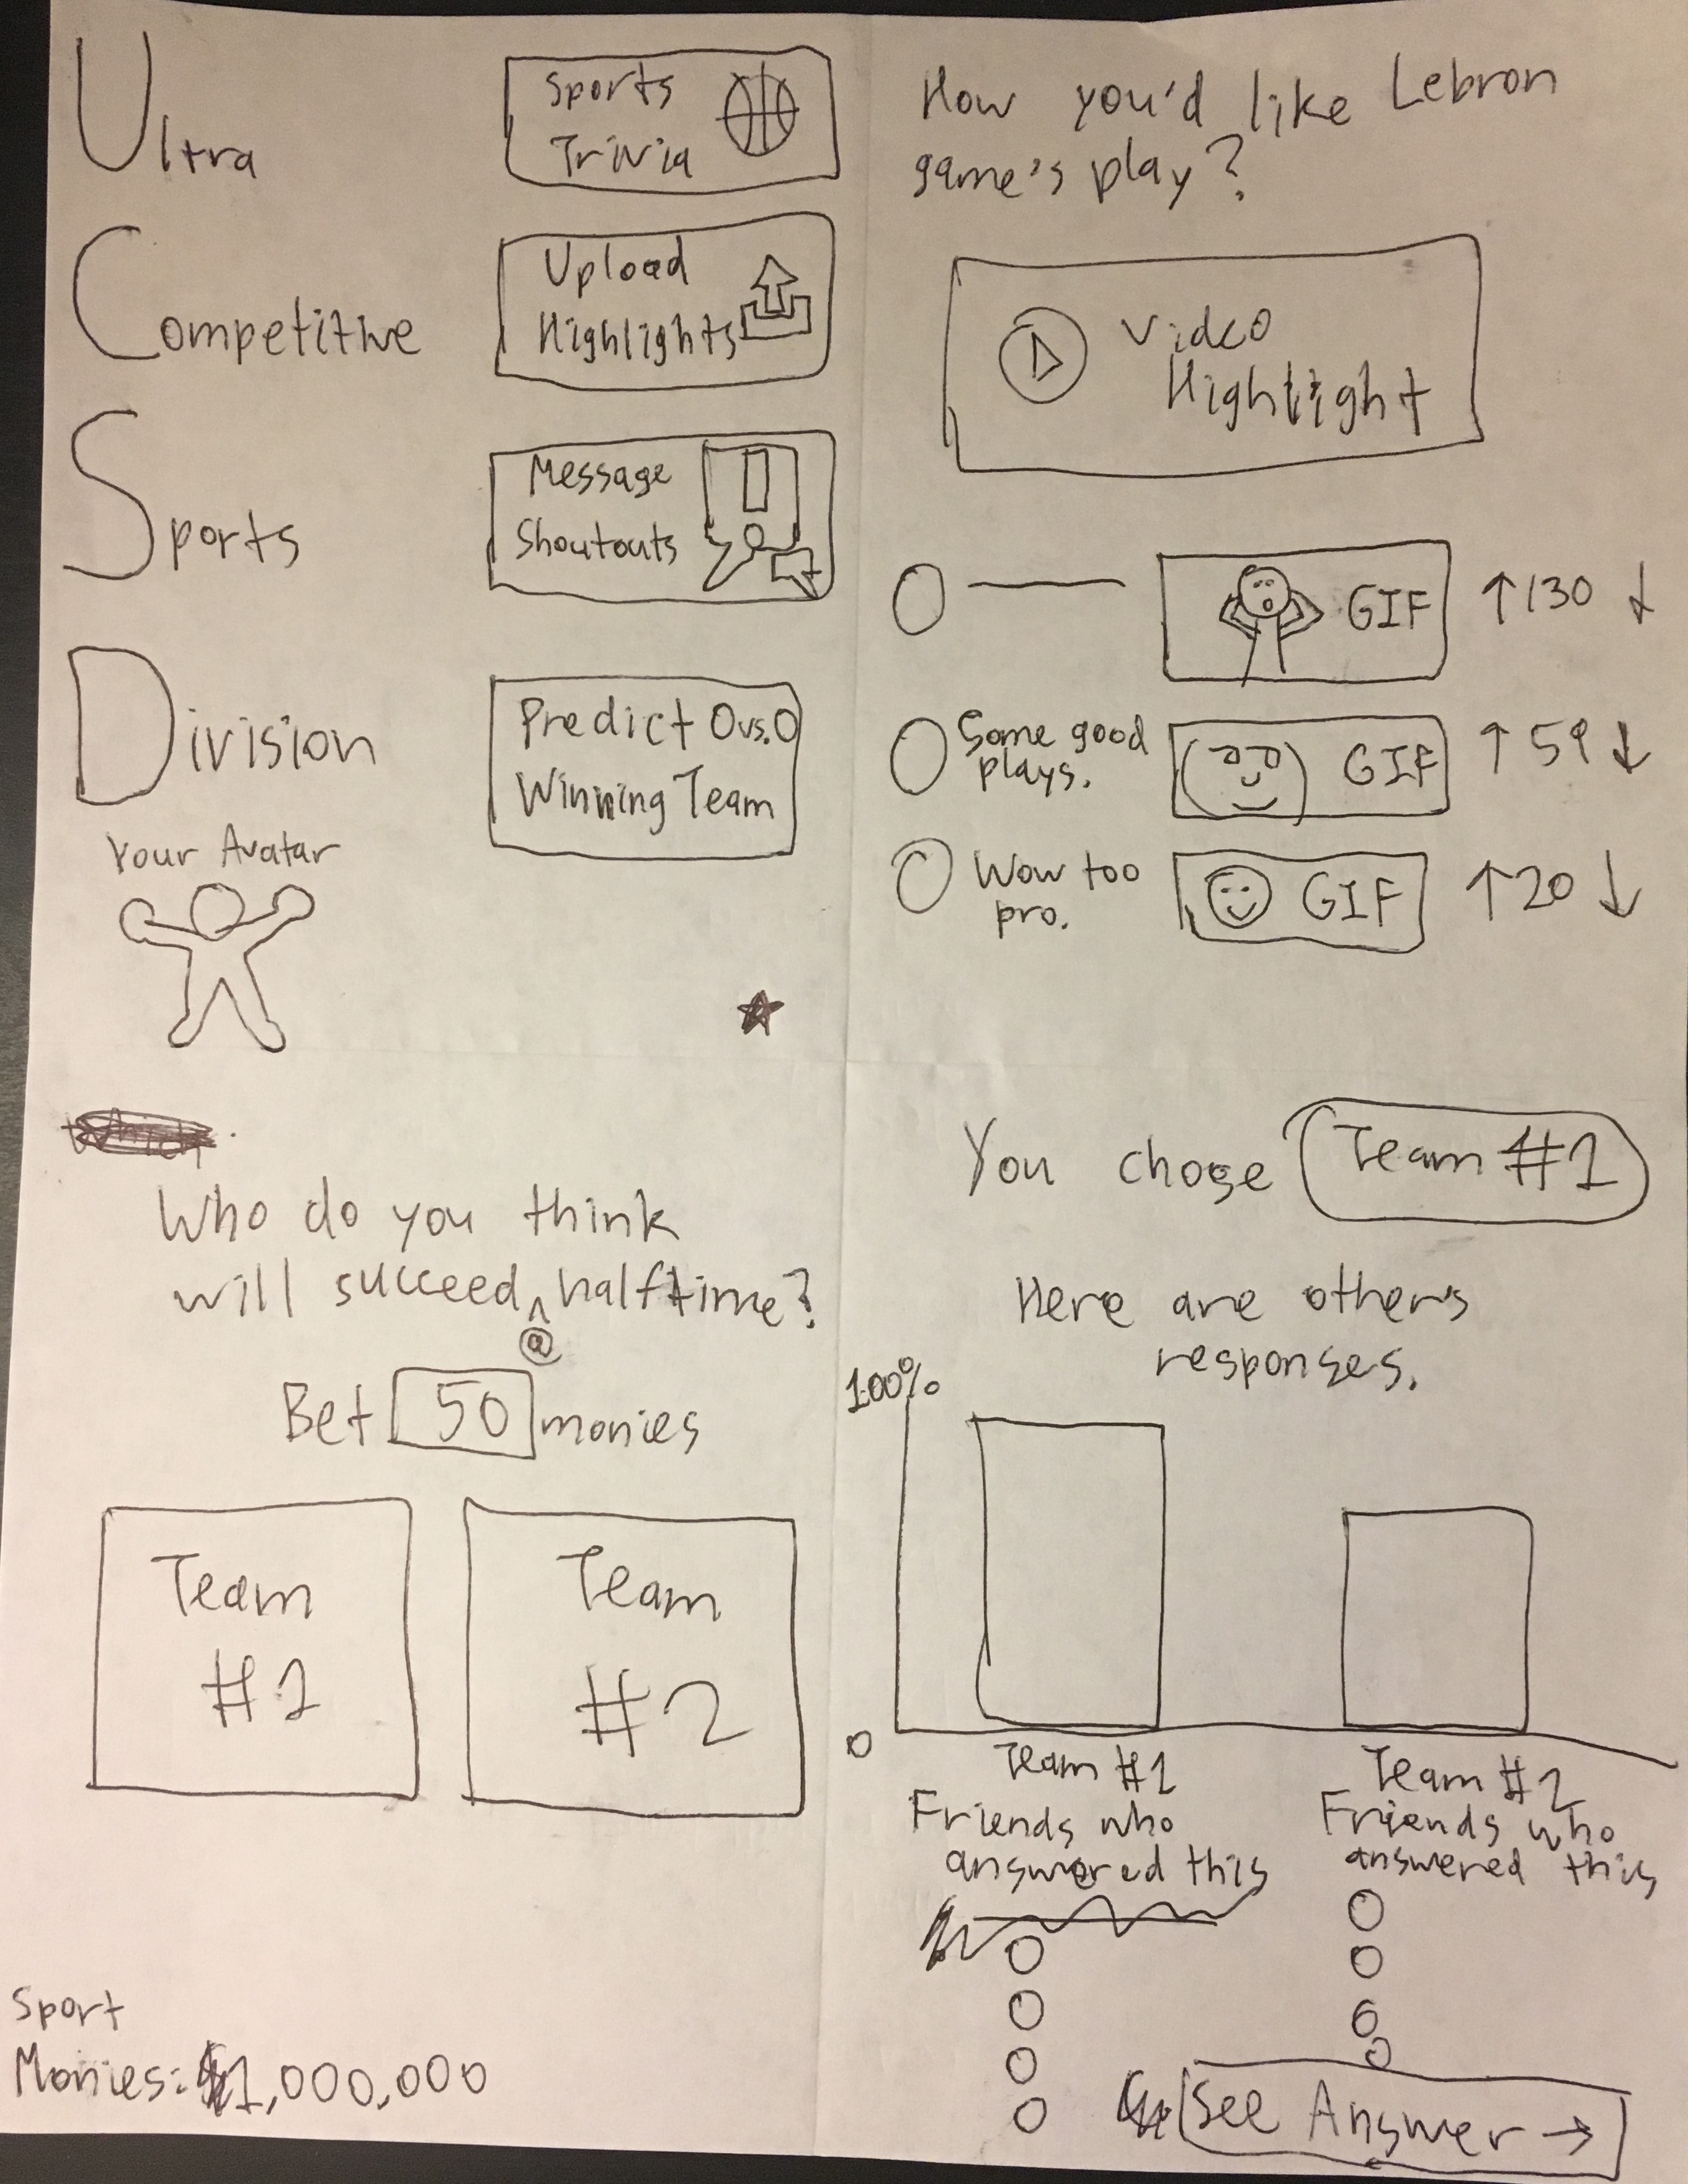 Ultra
Competitive
Sports
Division
Your Avatar
Sports
Trivia
Upload
Highlights
Message
Shoutouts
Predict O vs. O
Winning Team
How you'd like Lebron
game's play?
Video
Highlight
GIF ↑130 ↓
Some good
plays.
GIF ↑59 ↓
Wow too
pro.
GIF ↑20 ↓
Who do you think
will succeed @ halftime?
Bet 50 monies
Team
#1
Team
#2
Sport
Monies: $1,000,000
You chose Team #1
Here are others
responses.
100%
0
Team #1
Friends who
answered this
Team #2
Friends who
answered this
See Answer →